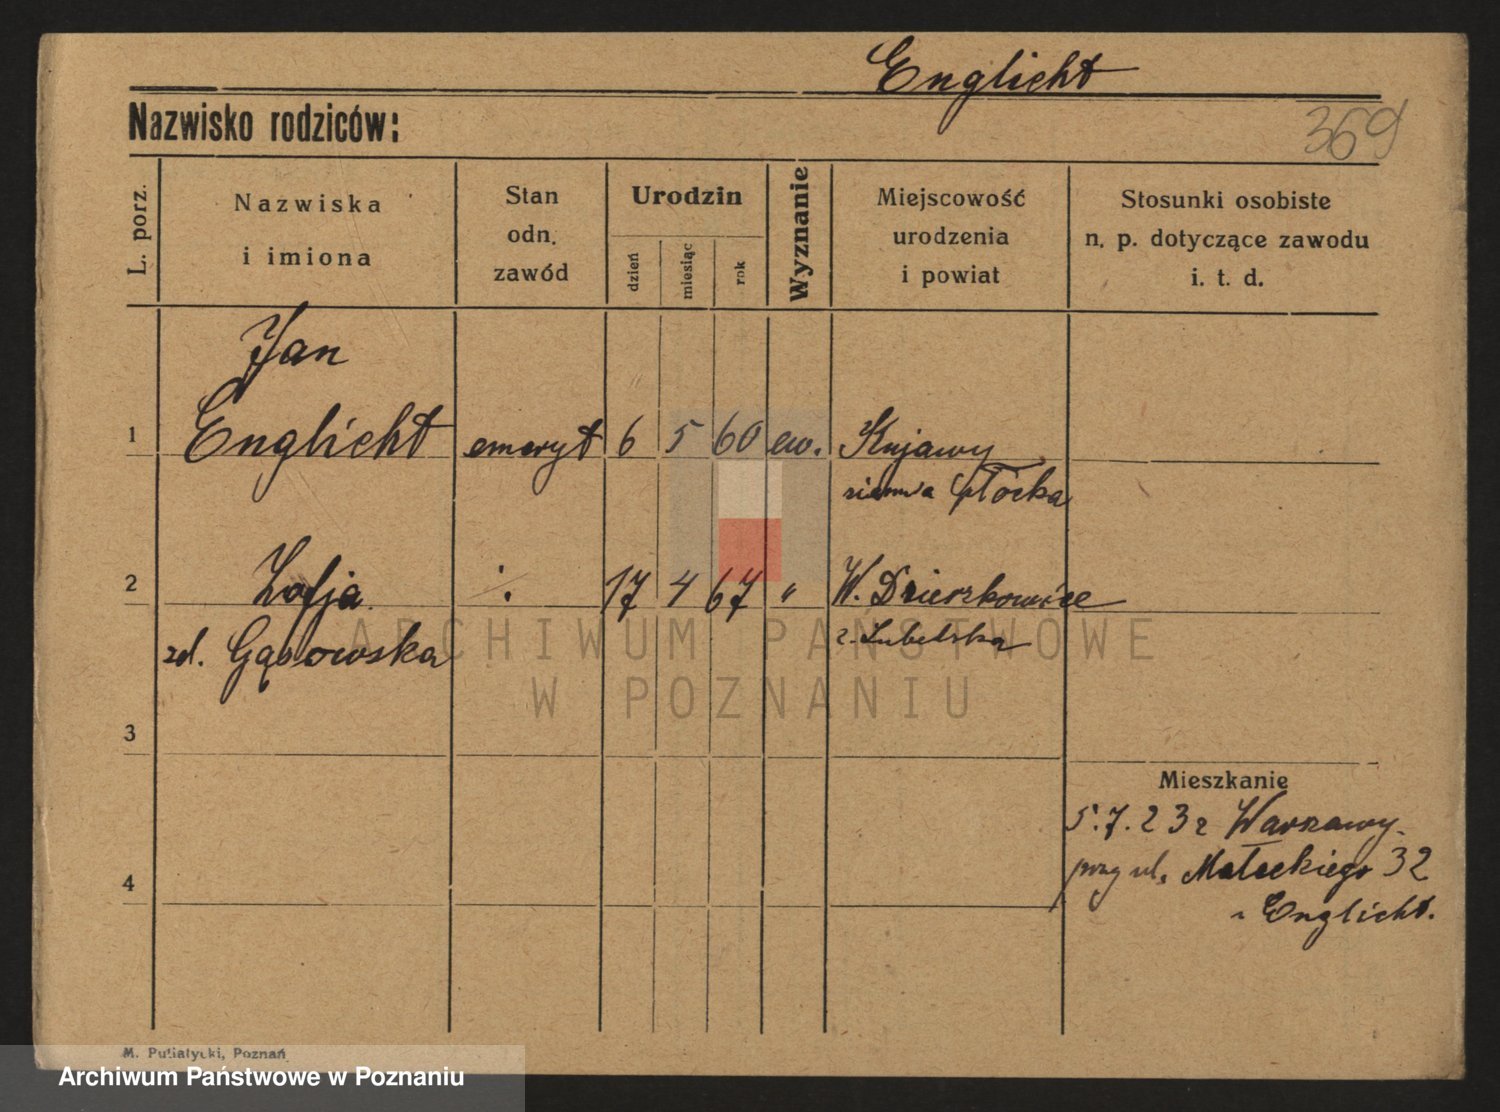 Englicht
Nazwisko rodziców:
369
L. porz.
Nazwiska
i imiona
Stan
odn.
zawód
Urodzin
dzień
miesiąc
rok
Wyznanie
Miejscowość
urodzenia
i powiat
Stosunki osobiste
n. p. dotyczące zawodu
i. t. d.
Jan
1 Englicht emeryt 6 5 60 ew. Kujawy
ziemia Płocka
2 Zofja 17 4 67 " W. Dzierzkowice
zd. Gąsowska z. Lubelska
ARCHIWUM PAŃSTWOWE
W POZNANIU
3
Mieszkanie
5.7.23 z Warszawy.
przy ul. Małeckiego 32
4
Englicht.
M. Putiatycki, Poznań
Archiwum Państwowe w Poznaniu